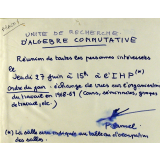 UNITE DE RECHERCHE
D'ALGEBRE COMMUTATIVE
Réunion de toutes les personnes intéressées
le
Jeudi 27 juin à 15h à l'IHP (*)
Ordre du jour : échange de vues sur l'organisation
du travail en 1968-69 (Cours, séminaires, groupes
de travail, etc.)
P. Samuel
(*) La salle sera indiquée au tableau d'occupation
des salles.